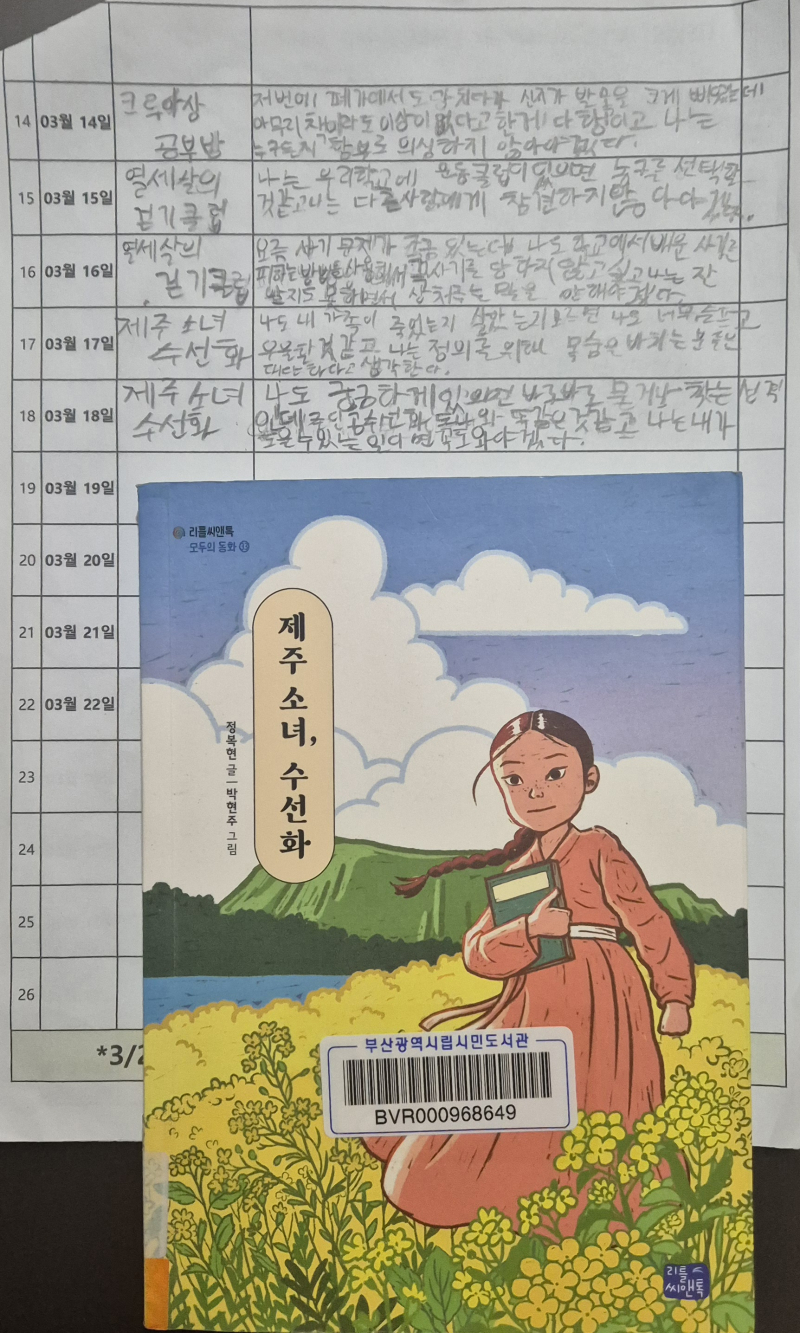 14 03월 14일 크루아상
공부방
저번에 폐가에서도 신지가 발목을 크게
아무리 이상이 없다고 한게 다행이고 나는
누구든지 함부로 의심하지 않아야겠다.
15 03월 15일 열세살의
걷기 클럽
나는 우리학교에 운동클럽이 있으면 누구를 선택할
것같고나는 다른사람에게 참견하지않아야
16 03월 16일 열세살의
걷기클럽
요즘 사기 문제가 조금 있는데 나도 학교에서배운 사길
피하는방법을사용해서 사기를 당하지 않고 싶고나는 잘
알지도 못하면서 상처주는 말을 안해야겠다.
17 03월 17일 제주 소녀
수선화
나도 내 가족이 죽었는지 살았는지모르면 나도 너무 슬프고
우울할것같고 나는 정의를 위해 목숨을 바치는 분들은
대단하다고 생각한다.
18 03월 18일 제주 소녀
수선화
나도 궁금한게있으면 바로바로 묻거나 찾는 성격
인데 주인공수선화 똑같은것같고 나는내가
도울수있는 일이 면 꼭도와야겠다.
19 03월 19일
20 03월 20일
21 03월 21일
22 03월 22일
23
24
25
26
*3/2
리틀씨앤톡
모두의 동화 33
제주 소녀, 수선화
정복현 글 | 박현주 그림
부산광역시립시민도서관
BVR000968649
리틀
씨앤톡